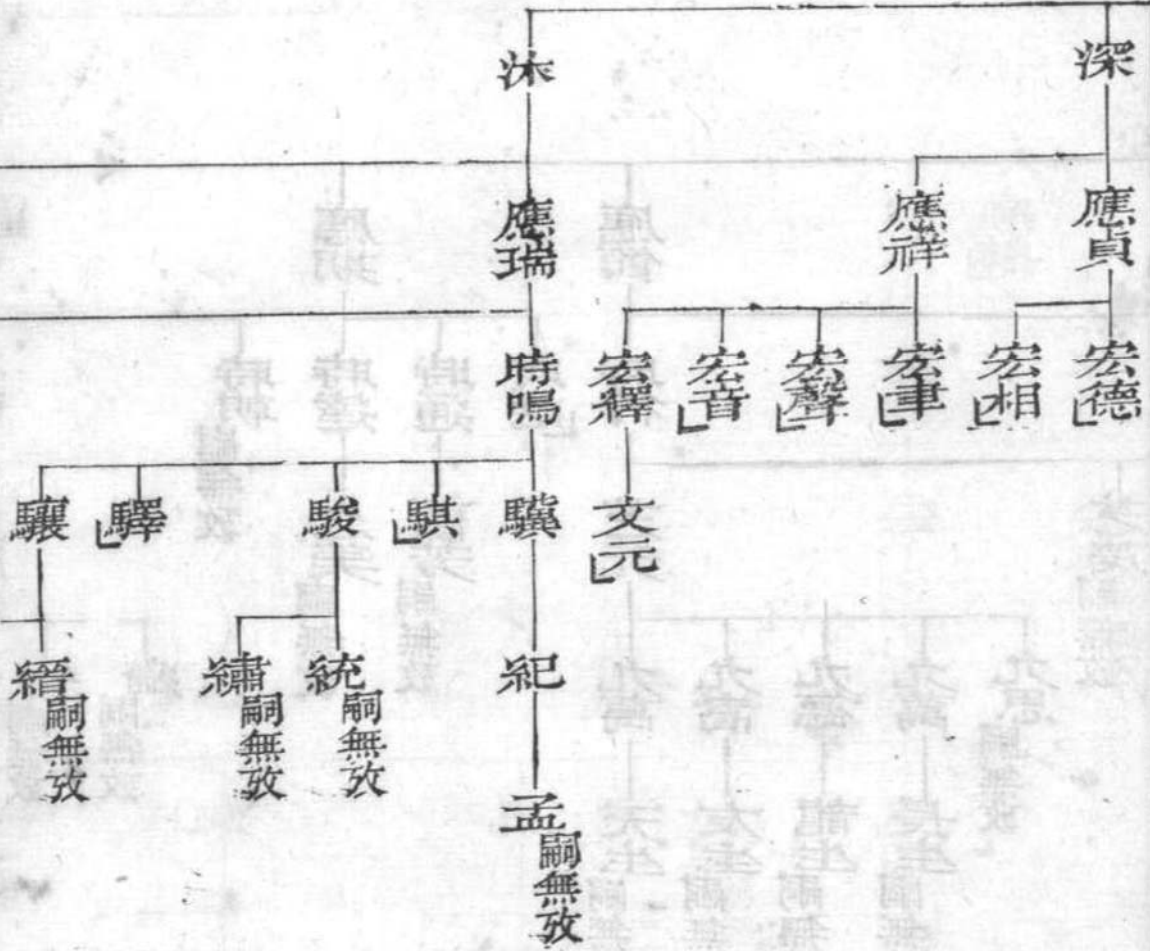 深
應貞
宏德
宏相
應祥
宏聿
宏聲
宏音
宏繹
文元
沐
應瑞
時鳴
驥
紀
孟嗣無攷
騏
駿
統嗣無攷
繡嗣無攷
驛
驤
縉嗣無攷